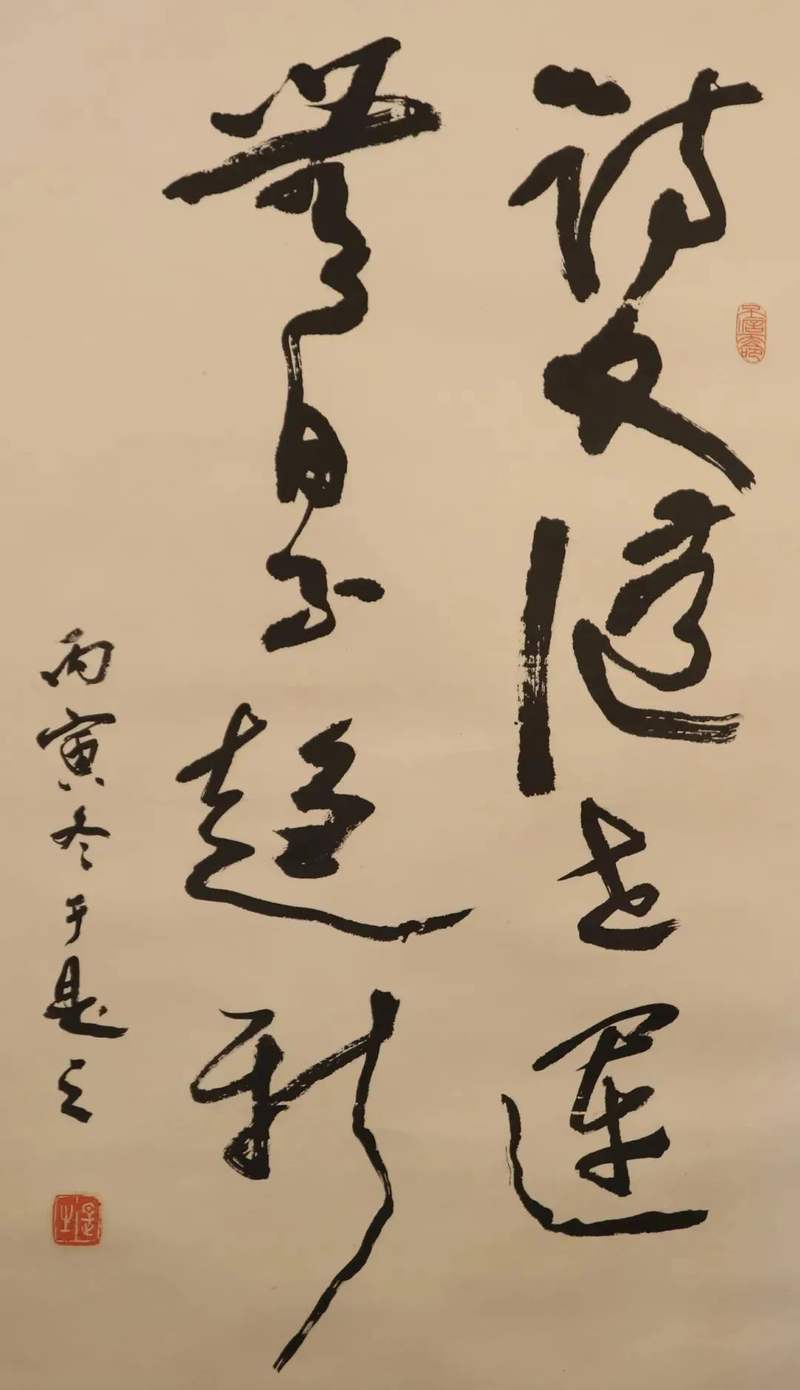 詩文隨世運
無日不趋新
丙寅冬于是之
是之